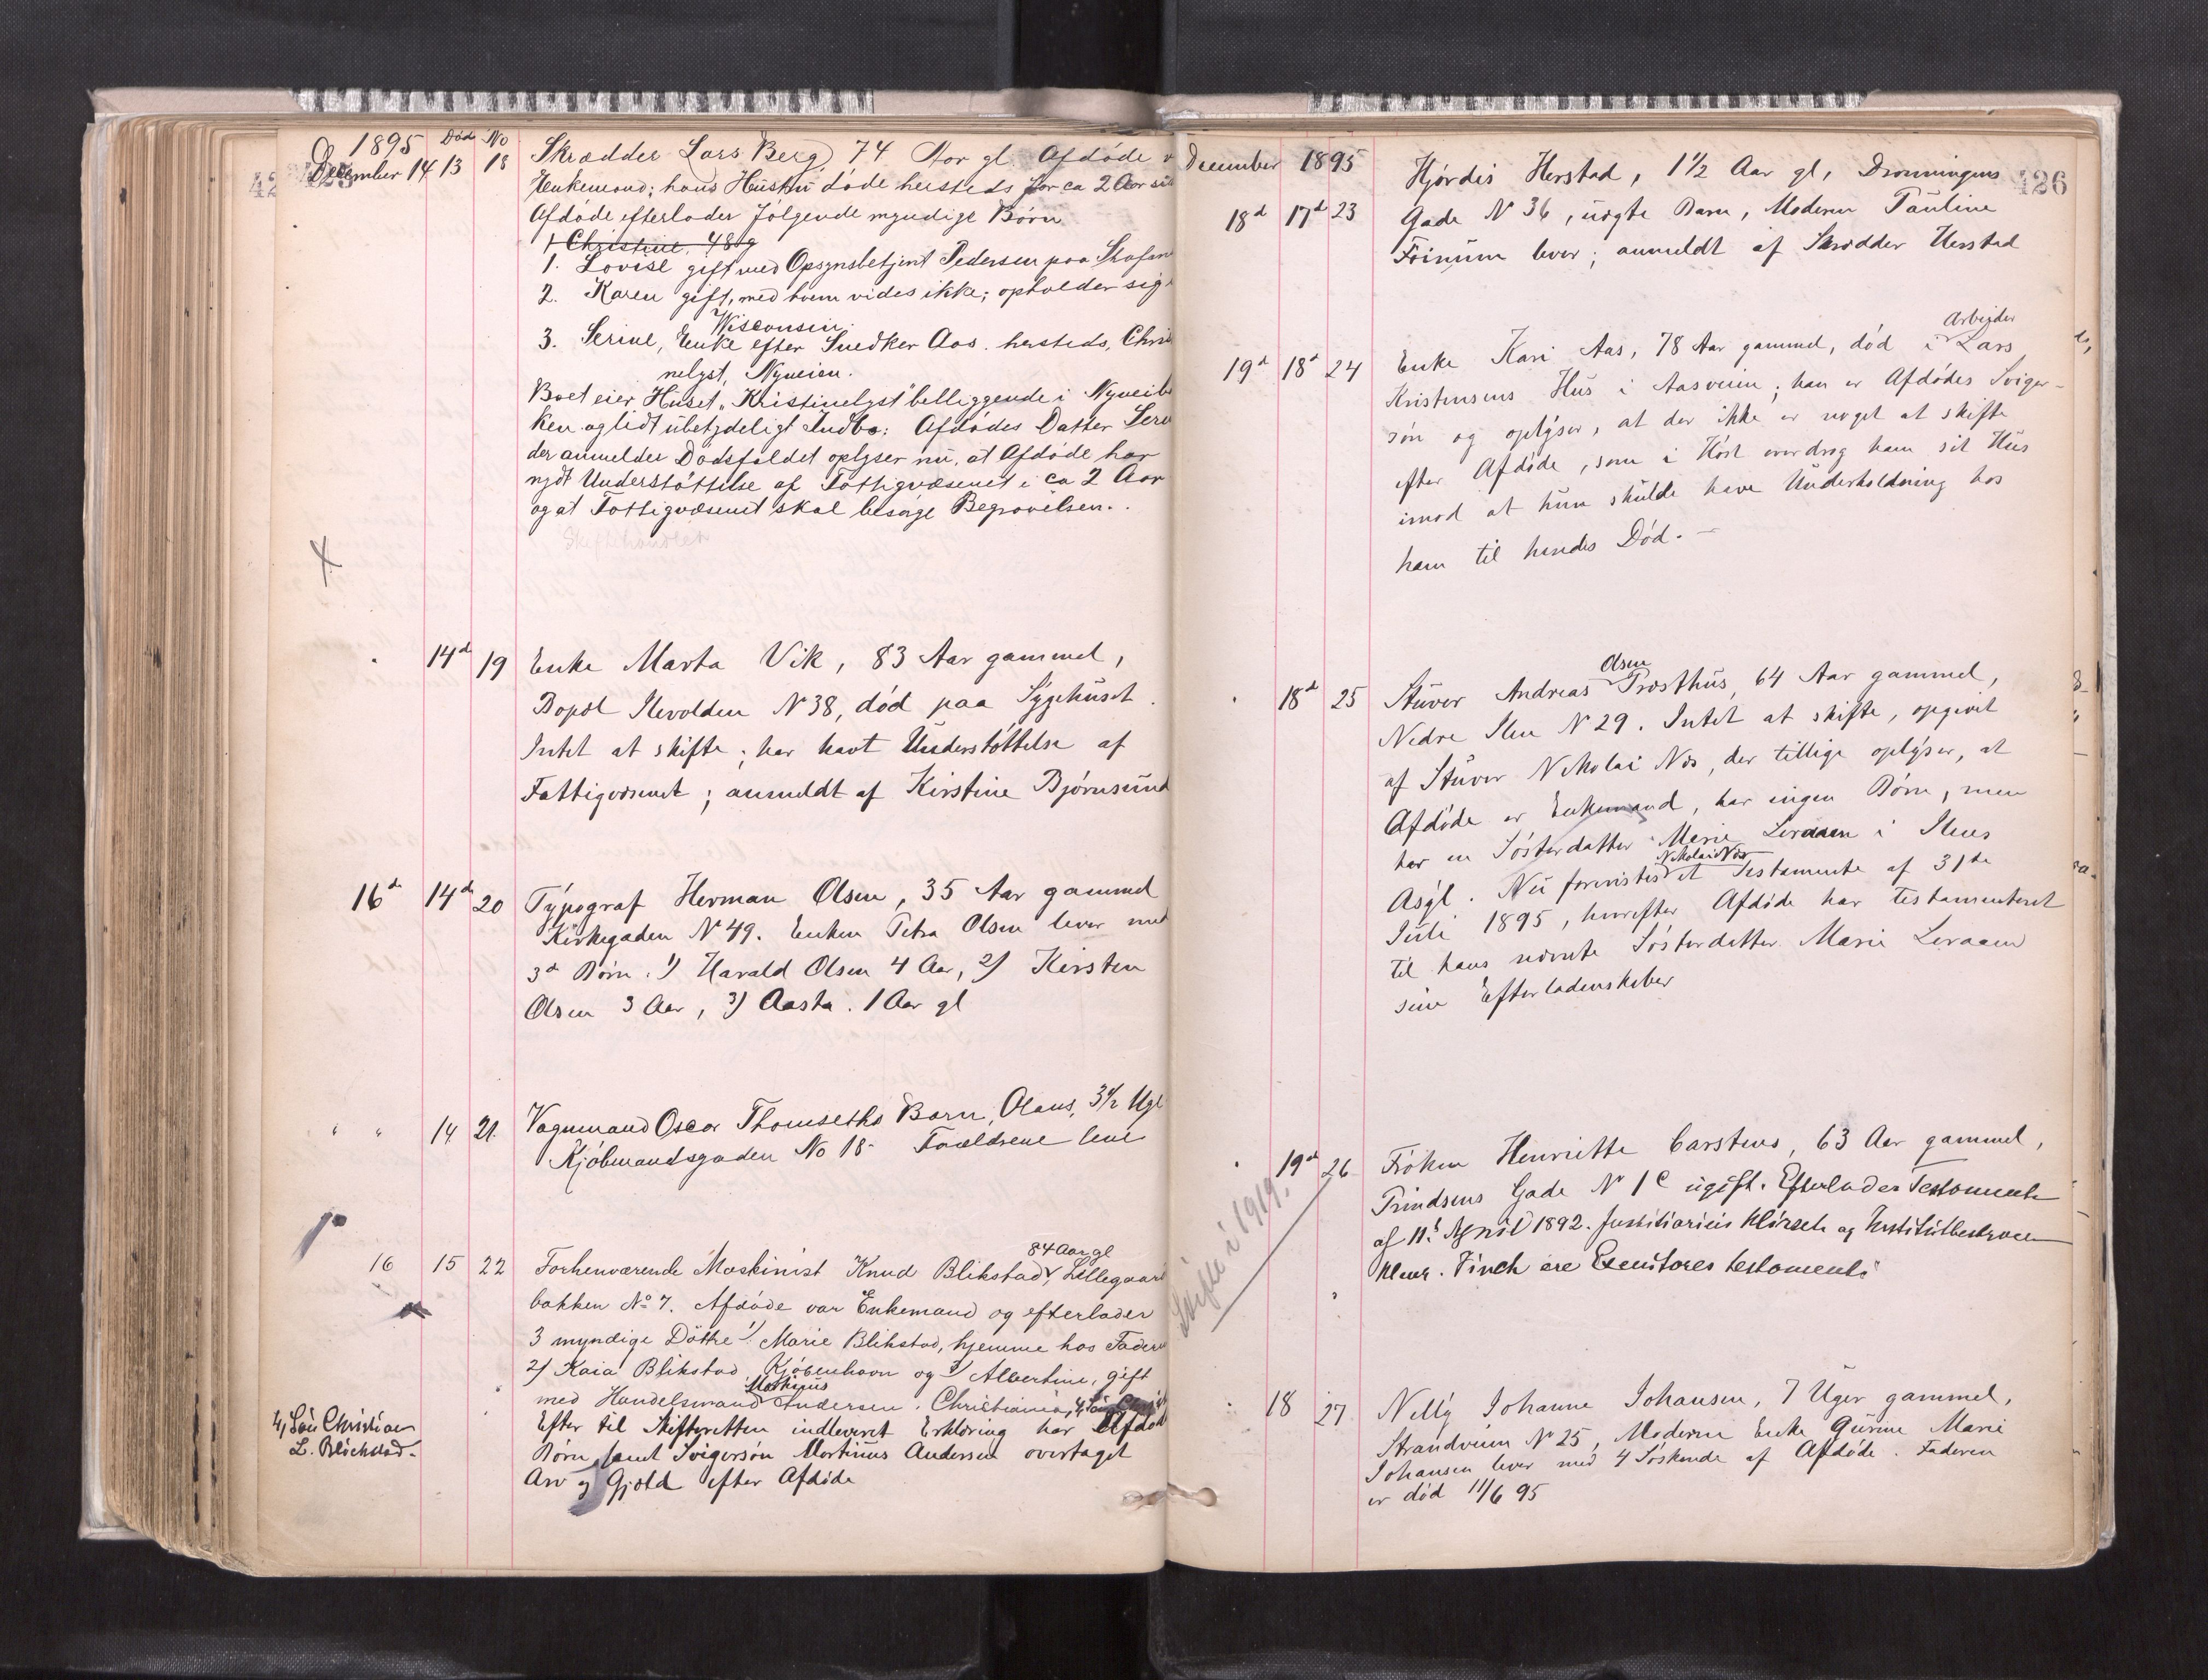 1895 Død No
425
December 14 13 18 Skrædder Lars Berg 74 Aar gl. Afdøde
Enkemand; hans Hustru døde hersteds for ca 2 Aar
Afdøde efterlader følgende myndige Børn
1 Christine, 48 g
1. Lovise gift med Opsynsbetjent Pedersen paa
2. Karen gift, med hvem vides ikke; opholder sig
Wisconsin.
3. Serine, Enke efter Snedker Aas. hersteds,
nelyst, Nyveien.
Boet eier Huset "Kristinelyst" belliggende i
ken og lidt ubetydeligt Indbo: Afdødes Datter
der anmelder Dødsfaldet oplyser nu, at Afdøde har
nydt Understøttelse af Fattigvæsenet i ca 2 Aar
og at Fattigvæsenet skal besørge Begravelsen.
14d 19 Enke Marta Vik, 83 Aar gammel,
Bopæl Ilevolden N 38, død paa Sygehuset
Intet at skifte; har havt Understøttelse af
Fattigvæsenet; anmeldt af Kirstine Bjørnsund
16d 14d 20 Typograf Herman Olsen, 35 Aar gammel
Kirkegaden N 49. Enken Petra Olsen lever med
3d Børn. 1) Harald Olsen 4 Aar, 2) Kirsten
Olsen 3 Aar, 3) Aasta. 1 Aar gl
" " 14 21. Vognmand Oscar Thomseths Barn, Olaus, 3½
Kjøbmandsgaden No 18- Forældrene leve
84 Aar gl
16 15 22 Forhenværende Maskinist Knud Blikstad, Lillegaard
bakken No 7. Afdøde var Enkemand og efterlader
3 myndige Døttre 1) Marie Blikstad, hjemme hos
2) Kaia Blikstad Kjøbenhavn og 3) Albertine, gift
med Handelsmand Martinus Andersen. Christiania,
4, Søn Christian
L. Blichstad.
Efter til Skifteretten indleveret Erklæring har
Børn samt Svigersøn Martinus Andersen overtaget
Arv og Gjæld efter Afdøde
December 1895
426
Hjørdis Herstad, 1½ Aar gl, Dronningens
18d 17d 23 Gade N 36, uægte Barn, Moderen Pauline
lever; anmeldt af Skrædder Herstad
Arbeider
19d 18d 24 Enke Kari Aas, 78 Aar gammel, død i Lars
Kristensens Hus i Aasveien; han er Afdødes Sviger-
søn og oplyser, at der ikke er noget at skifte
efter Afdøde, som i Høst overdrog ham sit Hus
imod at hun skulde have Underholdning hos
ham til hendes Død. -
Olsen
18d 25 Stuver Andreas Præsthus, 64 Aar gammel,
Nedre Ilen N 29. Intet at skifte, opgivit
af Stuver Nikolai Næs, der tillige oplyser, at
Afdøde er Enkemand, har ingen Børn, men
har en Søsterdatter Marie Leraaen i Ilens
Nikolai Næs
Asyl. Nu forevistes et Testamente af 31te
Juli 1895, hvorefter Afdøde har testamenteret
til hans nævnte Søsterdatter Marie Leraaen
sine Efterladenskaber
Skifte i 1919.
19d 26 Frøken Henriette Carstens, 63 Aar gammel,
Prindsens Gade N 1c ugift. Efterlader Testamente
af 11t April 1892. Justitiarius og
Finch ere Executores testamenti
18 27 Nelly Johanne Johansen, 7 Uger gammel,
Strandveien N 25, Moderen Enke Gurine Marie
Johansen lever med 4 Søskende af Afdøde. Faderen
er død 11/6 95